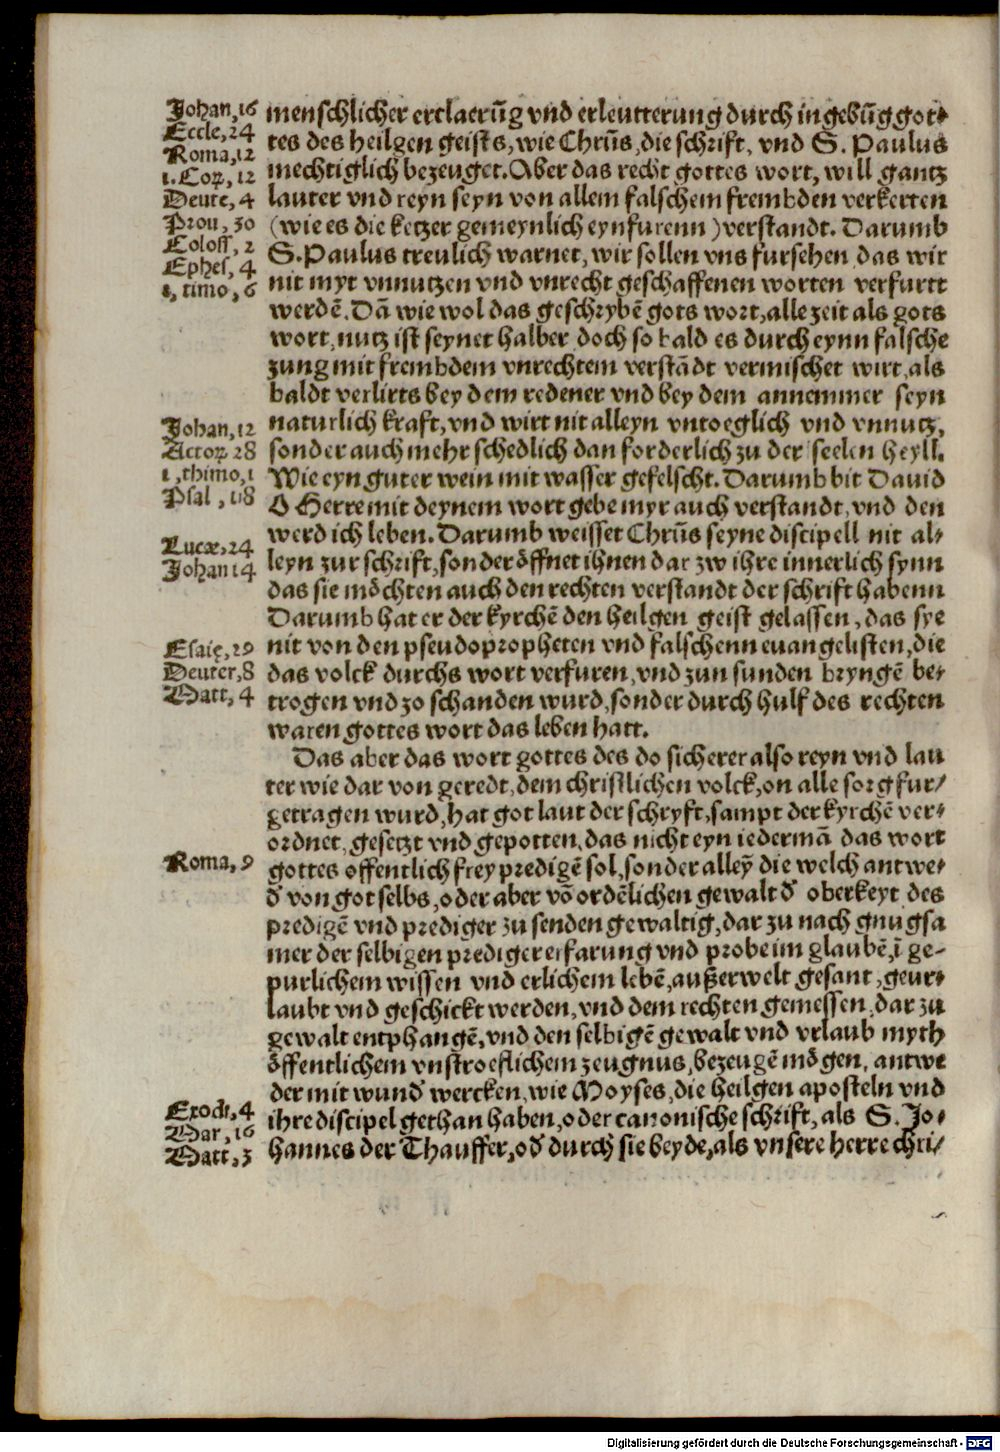 Johan,16
Eccle,24
Roma,12
1.Coꝛ,12
Deute,4
Prou,30
Coloss,2
Ephes,4
1,timo,6
menschlicher erclaerūg vnd erleutterung durch ingebūg got⸗
tes des heilgen geists, wie Chrūs, die schrift, vnd S. Paulus
mechtiglich bezeuget. Aber das recht gottes wort, will gantz
lauter vnd reyn seyn von allem falschem frembden verkerten
(wie es die ketzer gemeynlich eynfurenn) verstandt. Darumb
S. Paulus treulich warnet, wir sollen vns fursehen das wir
nit myt vnnutzen vnd vnrecht geschaffenen worten verfurtt
werdē. Dā wie wol das geschrybē gots wort, alle zeit als gots
wort, nutz ist seynet halber doch so bald es durch eynn falsche
zung mit frembdem vnrechtem verstādt vermischet wirt, als
baldt verlirts bey dem redener vnd bey dem annemmer seyn
Johan,12
Actoꝛ 28
1,thimo,1
Psal,118
naturlich kraft, vnd wirt nit alleyn vntoeglich vnd vnnutz,
sonder auch mehr schedlich dan forderlich zu der seelen heyll.
Wie eyn guter wein mit wasser gefelscht. Darumb bit Dauid
O Herre mit deynem wort gebe myr auch verstandt, vnd den
werd ich leben. Darumb weisset Chrūs seyne discipell nit al⸗
Lucæ,24
Johan 14
leyn zur schrift, sonder öffnet ihnen dar zw ihre innerlich synn
das sie möchten auch den rechten verstandt der schrift habenn
Darumb hat er der kyrchē den heilgen geist gelassen, das sye
Esaię,29
Deuter,8
Matt,4
nit von den pseudopropheten vnd falschenn euangelisten, die
das volck durchs wort verfuren, vnd zun sunden bryngē be⸗
trogen vnd zo schanden wurd, sonder durch hulf des rechten
waren gottes wort das leben hatt.
Das aber das wort gottes des do sicherer also reyn vnd lau
ter wie dar von geredt, dem christlichen volck, on alle sorg fur⸗
getragen wurd, hat got laut der schryft, sampt der kyrchē ver⸗
ordnet, gesetzt vnd gepotten, das nicht eyn iedermā das wort
Roma,9
gottes offentlich frey predigē sol, sonder alleȳ die welch antwe⸗
d̄ von got selbs, oder aber vō ordēlichen gewalt d̄ oberkeyt des
predigē vnd prediger zu senden gewaltig, dar zu nach gnugsa
mer der selbigen prediger erfarung vnd probe im glaubē, ī ge⸗
purlichem wissen vnd erlichem lebē, außerwelt gesant, geur⸗
laubt vnd geschickt werden, vnd dem rechten gemessen, dar zu
gewalt entphangē, vnd den selbigē gewalt vnd vrlaub myth
öffentlichem vnstroeflichem zeugnus, bezeugē mögen, antwe
der mit wund̄ wercken, wie Moyses, die heilgen aposteln vnd
Exodi,4
Mar,16
Matt,3
ihre discipel gethan haben, oder canonische schrift, als S. Jo⸗
hannes der Thauffer, od̄ durch sie beyde, als vnsere herre chri⸗
Digitalisierung gefördert durch die Deutsche Forschungsgemeinschaft - DFG